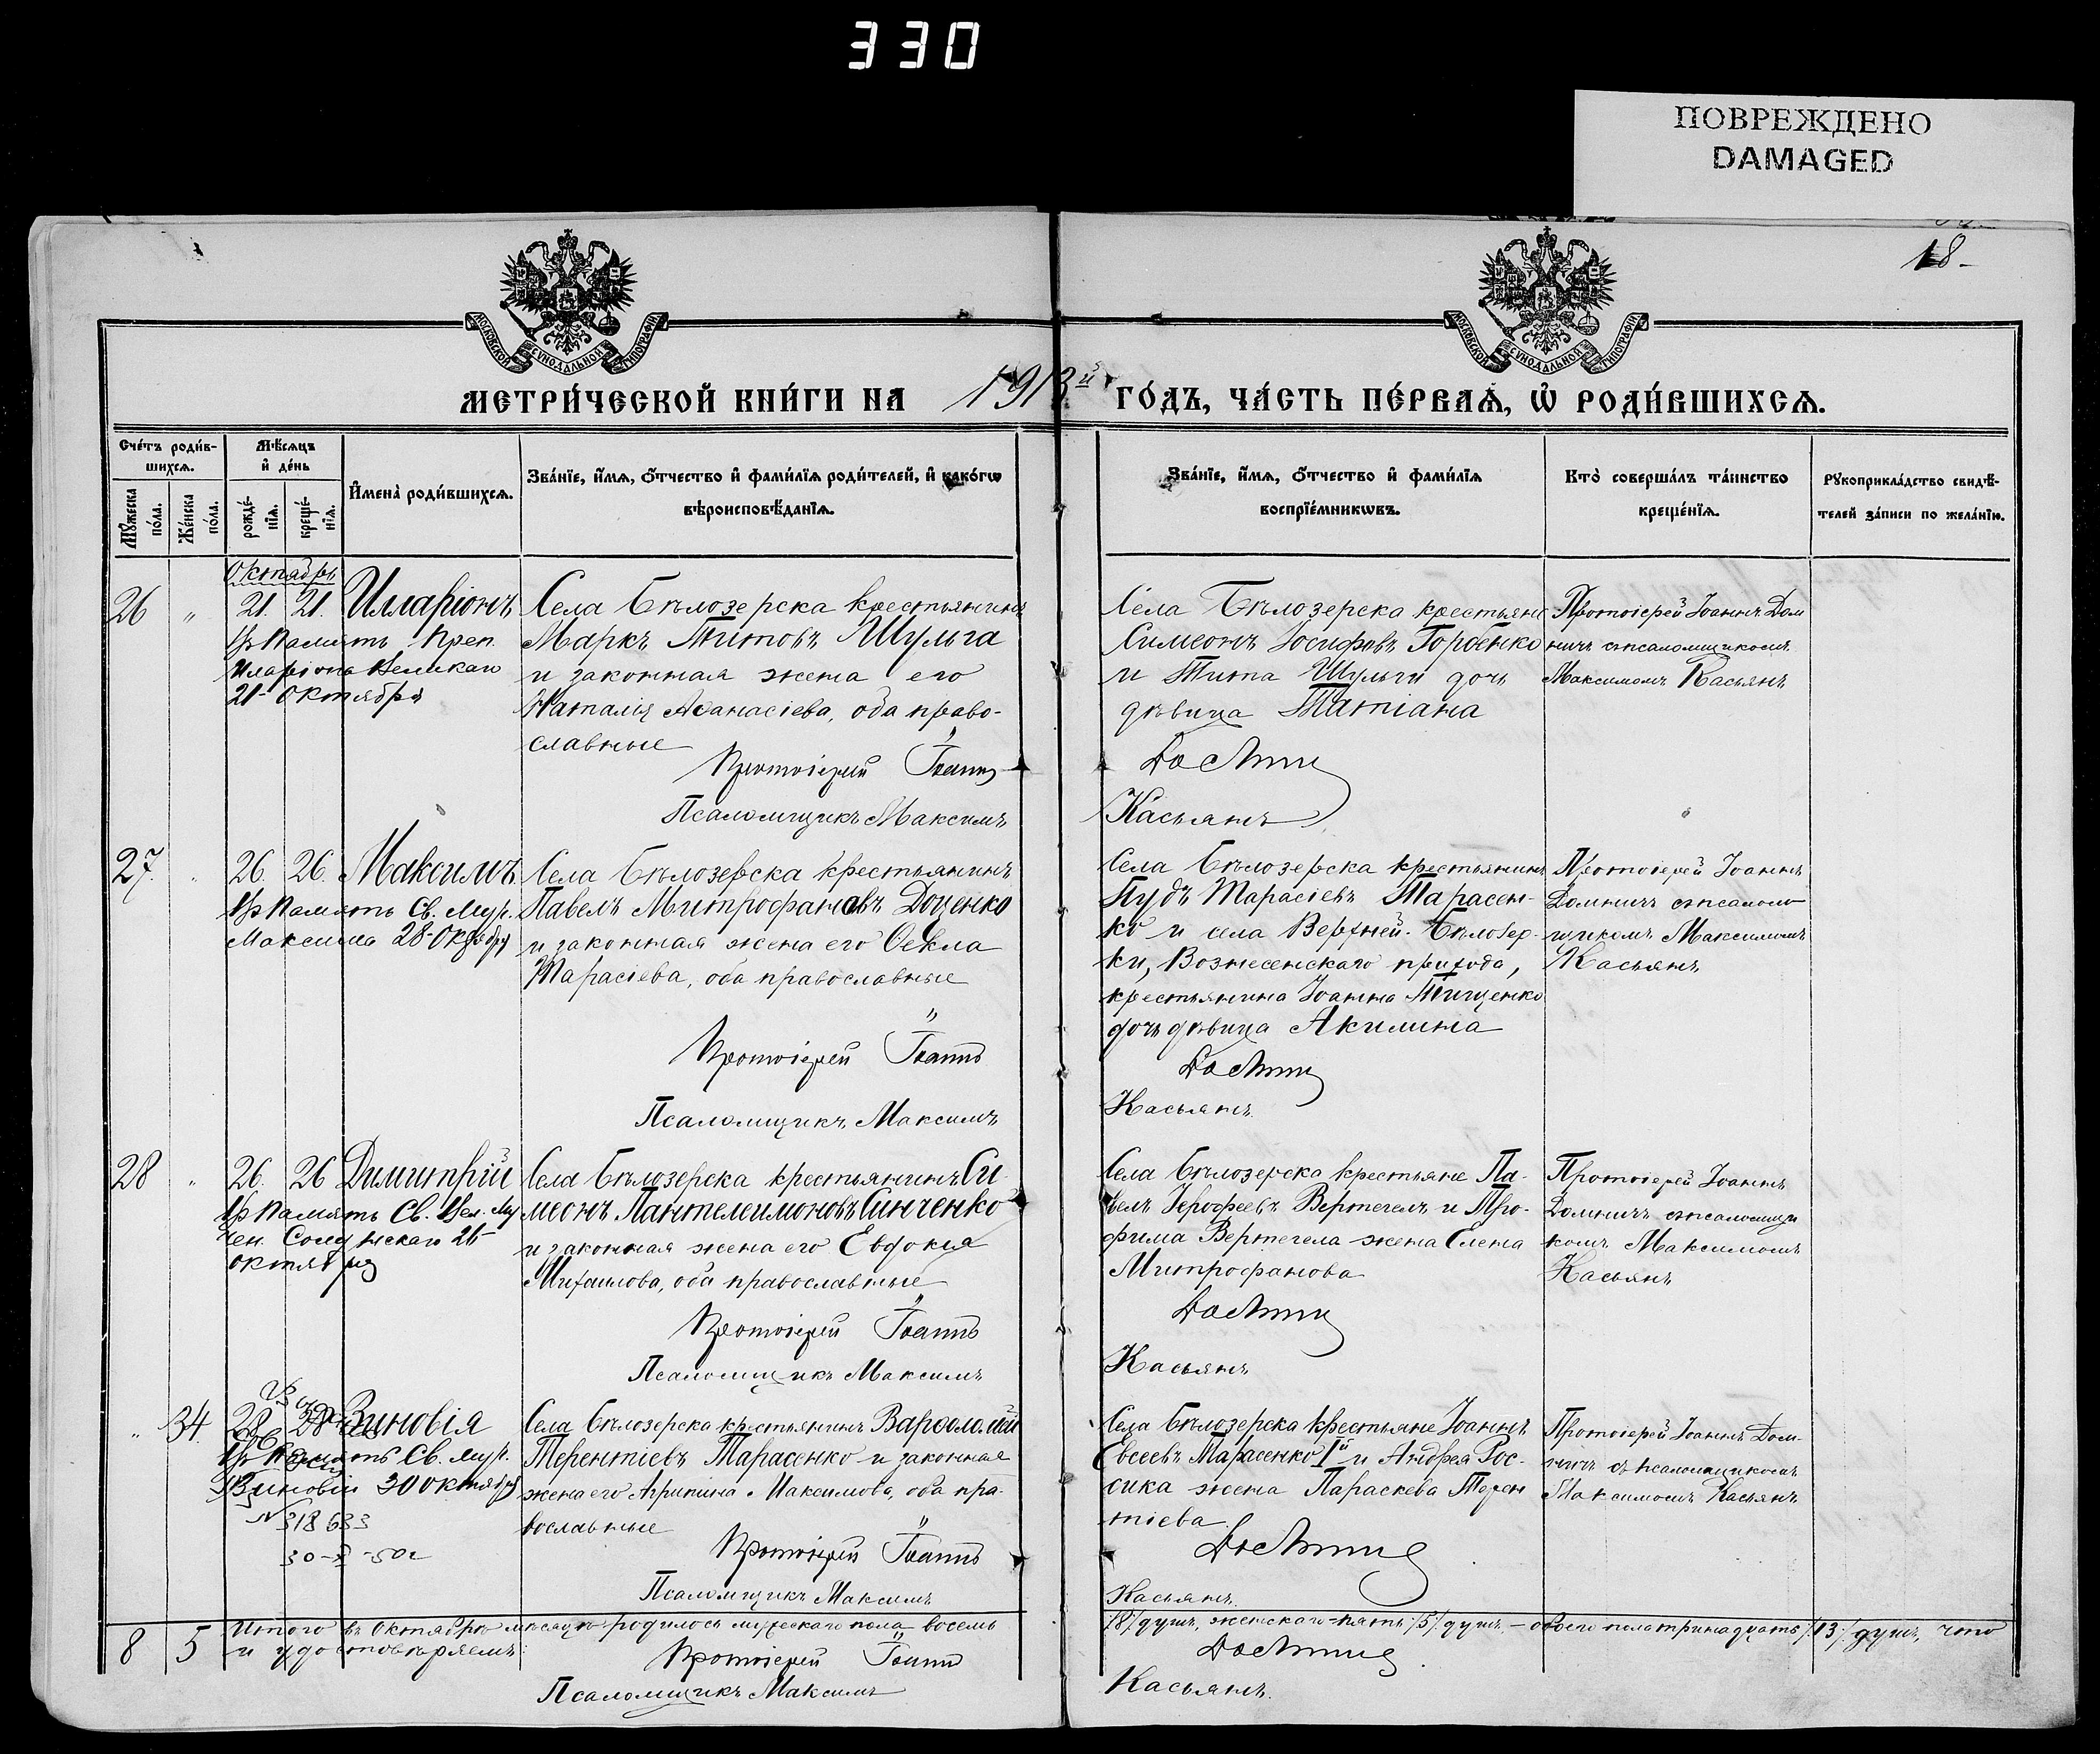 330
ПОВРЕЖДЕНО
DAMAGED
18-
МОСКОВСКОЙ СѴНОДАЛЬНОЙ ТИПОГРАФІИ
МОСКОВСКОЙ СѴНОДАЛЬНОЙ ТИПОГРАФІИ
МЕТРИ́ЧЕСКОЙ КНИ́ГИ НА 1913й ГО́ДЪ, ЧА́СТЬ ПЕ́РВАѦ, Ѡ҆ РОДИ́ВШИХСѦ.
Сче́тъ роди́в-
шихсѧ.
Мѣ́сѧцъ
и҆ де́нь
Мꙋ́жеска
по́ла.
Же́нска
по́ла.
рожде́-
нїѧ.
креще́-
нїѧ.
И҆мена̀ роди́вшихсѧ.
Зва́нїе, и҆́мѧ, ѻ҆́тчество и҆ фами́лїѧ роди́телей, и҆ како́гѡ
вѣроисповѣ́данїѧ.
Зва́нїе, и҆́мѧ, ѻ҆́тчество и҆ фами́лїѧ
воспрїе́мникѡвъ.
Кто̀ соверша́лъ та́инство
креще́нїѧ.
Рꙋкоприкла́дство свидѣ́-
телей за́писи по жела́нїю.
Октябрь
26 " 21. 21. Иларіонъ
Память Преп.
Иларіона Великаго
21 Октября
Села Бѣлозерска крестьянинъ
Маркъ Титовъ Шульга
и законная жена его
Наталія Аѳанасіева, оба право-
славные
Протоіерей Іоаннъ
Псаломщикъ Максимъ
Села Бѣлозерска крестьяне
Симеонъ Іосифовъ Горбенко
и Тита Шульги дочь
дѣвица Татіана
Касьянъ
Протоіерей Іоаннъ Дом
ничъ съ псаломщикомъ
Максимомъ Касьянъ
27. " 26. 26. Максимъ
Память Св. Муч.
Максима 28 Октября
Села Бѣлозерска крестьянинъ
Павелъ Митрофановъ Доценко
и законная жена его Ѳекла
Тарасіева, оба православные
Протоіерей Іоаннъ
Псаломщикъ Максимъ
Села Бѣлозерска крестьянинъ
Пудъ Тарасіевъ Тарасен-
ко и села Верхней-Бѣлозер-
ки, Вознесенскаго прихода,
крестьянина Іоанна Тищенко
дочь дѣвица Акилина
Касьянъ
Протоіерей Іоаннъ
Домничъ съ псаломо
щикомъ Максимомъ
Касьянъ
28 " 26. 26 Димитрій
Память Св. Вел. Му
чен. Солунскаго 26
октября
Села Бѣлозерска крестьянинъ Си-
меонъ Пантелеимоновъ Синченко
и законная жена его Евдокія
Михаилова, оба православные
Протоіерей Іоаннъ
Псаломщикъ Максимъ
Села Бѣлозерска крестьяне Па-
велъ Іероѳеевъ Вертегелъ и Тро-
фима Вертегела жена Елена
Митрофанова
Касьянъ
Протоіерей Іоаннъ
Домничъ съ псаломщи
комъ Максимомъ
Касьянъ
" 34. 28 28 Зиновія
Память Св. Муч.
Зиновіи 30 октября
N 318633
30-X-50г
Села Бѣлозерска крестьянинъ Варѳоломей
Терентіевъ Тарасенко и законная
жена его Агрипина Максимова, оба пра-
вославные
Протоіерей Іоаннъ
Псаломщикъ Максимъ
Села Бѣлозерска крестьяне Іоаннъ
Евсеевъ Тарасенко 1й и Андрея Рос-
сика жена Параскева Терен
тіева
Касьянъ
Протоіерей Іоаннъ Дом-
ничъ съ псаломщикомъ
Максимомъ Касьянъ
8 5 Итого въ Октябрѣ мѣсяцѣ родилось мужескаго пола восемь /8/ душъ, женскаго-пять /5/ душъ, - обоего пола тринадцать /13/ душъ, что
и удостовѣряемъ:
Протоіерей Іоаннъ
Псаломщикъ Максимъ Касьянъ.